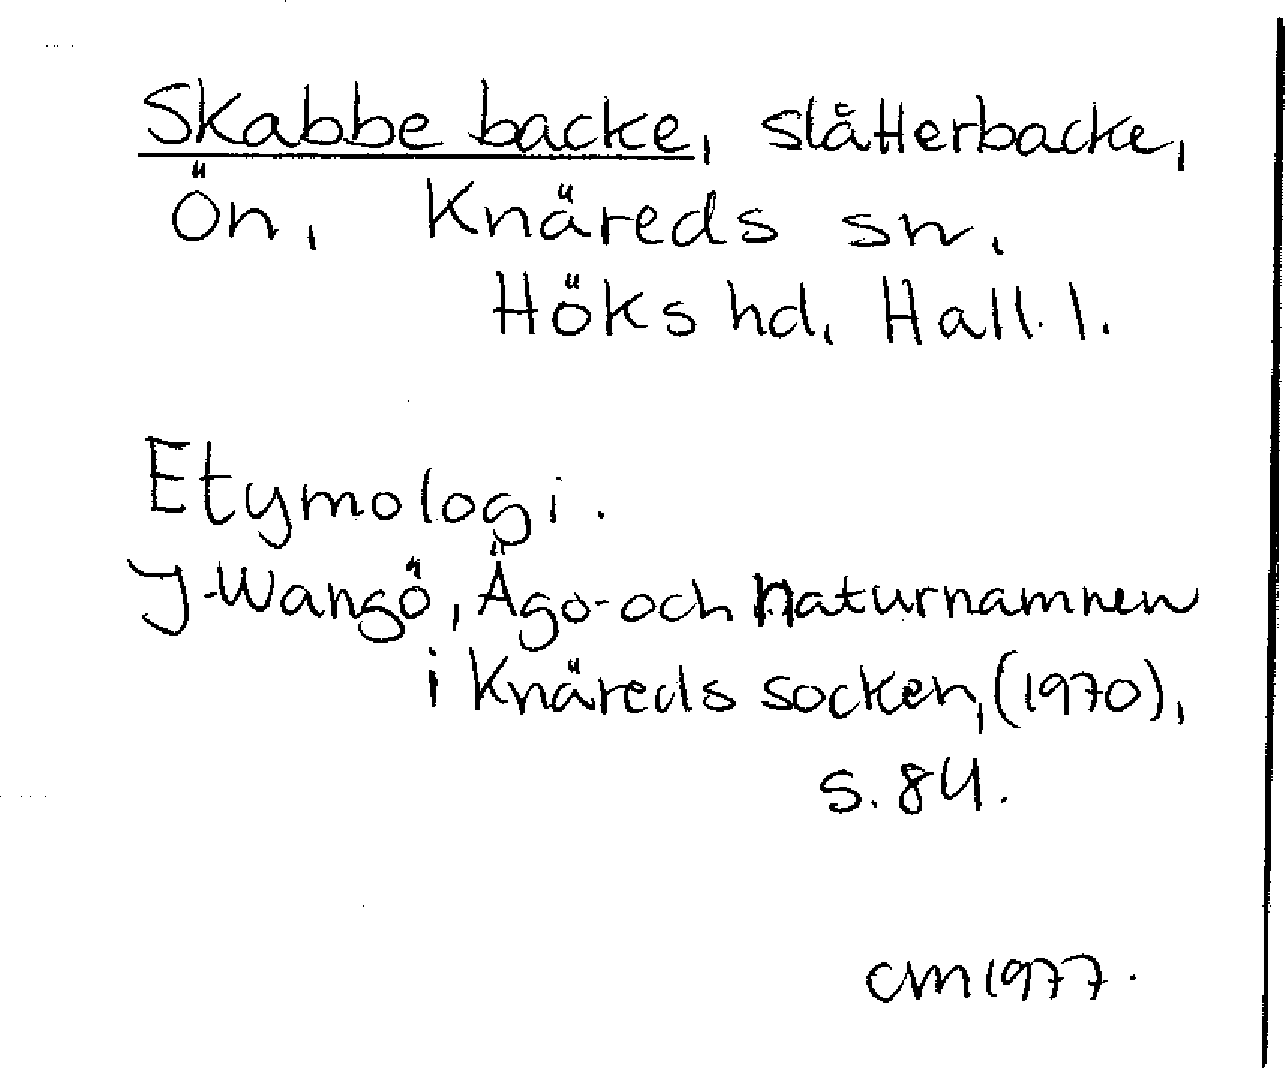 Skabbe backe, slåtterbacke,
Ön, Knäreds sn,
Höks hd, Hall. l.
Etymologi.
J-Wangö, Ägo- och naturnamnen
i Knäreds socken, (1970),
s. 84.
CM 1977.